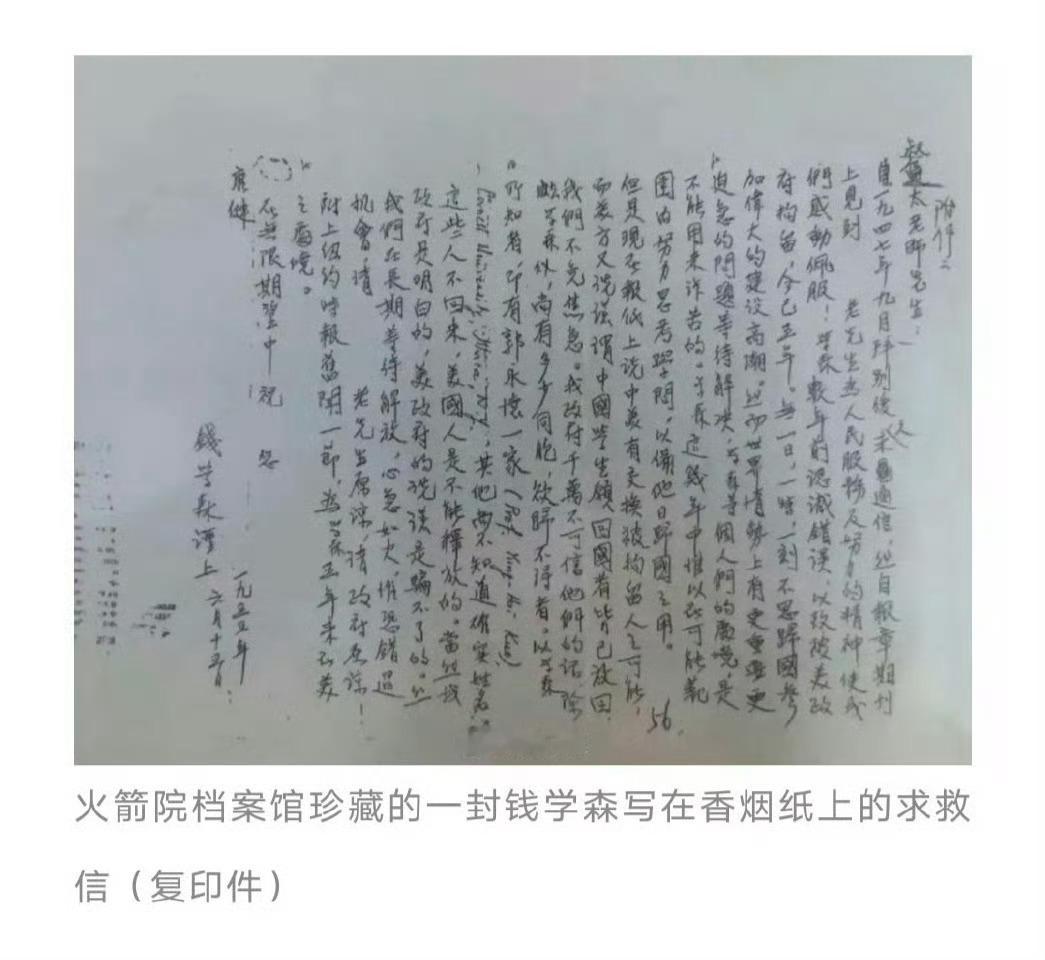 附件二
叔通太老师先生：
自一九四七年九月拜别後未久通信，然自报章期刊
上見到　老先生为人民服務及努力的精神使我
們感動佩服！学森數年前認識错误，以致被美政
府拘留，今已五年。無一日，一時，一刻不思歸國参
加偉大的建设高潮。然而世界情勢上有更重要更
迫急的問題等待解决，学森等個人們的處境，是
不能用来诉苦的。学森這幾年中惟以在可能範
圍内努力思考學問，以備他日歸國之用。
但是現在报纸上說中美有交換被拘留人之可能，
而美方又說謊謂中國學生願回國者皆已放回，
我們不免焦急。我政府千萬不可信他們的话，除
学森外，尚有多少同胞，欲歸不得者。以学森
所知者，即有郭永懷一家（Prof. Yung-Huai Kuo,
Cornell University, Ithaca, N.Y.），其他尚不知道確实姓名。
這些人不回来，美國人是不能釋放的。當然我
政府是明白的，美政府的说谎是騙不了的。然
我們在長期等待解放，心急如火，惟恐错過
机會，请　老先生原谅，请政府原谅！
附上纽约時報舊聞一節，为学森五年来在美
之處境。
在無限期望中　祝　您
康健
錢学森谨上
一九五五年
六月十五日
56.
火箭院档案馆珍藏的一封钱学森写在香烟纸上的求救
信（复印件）